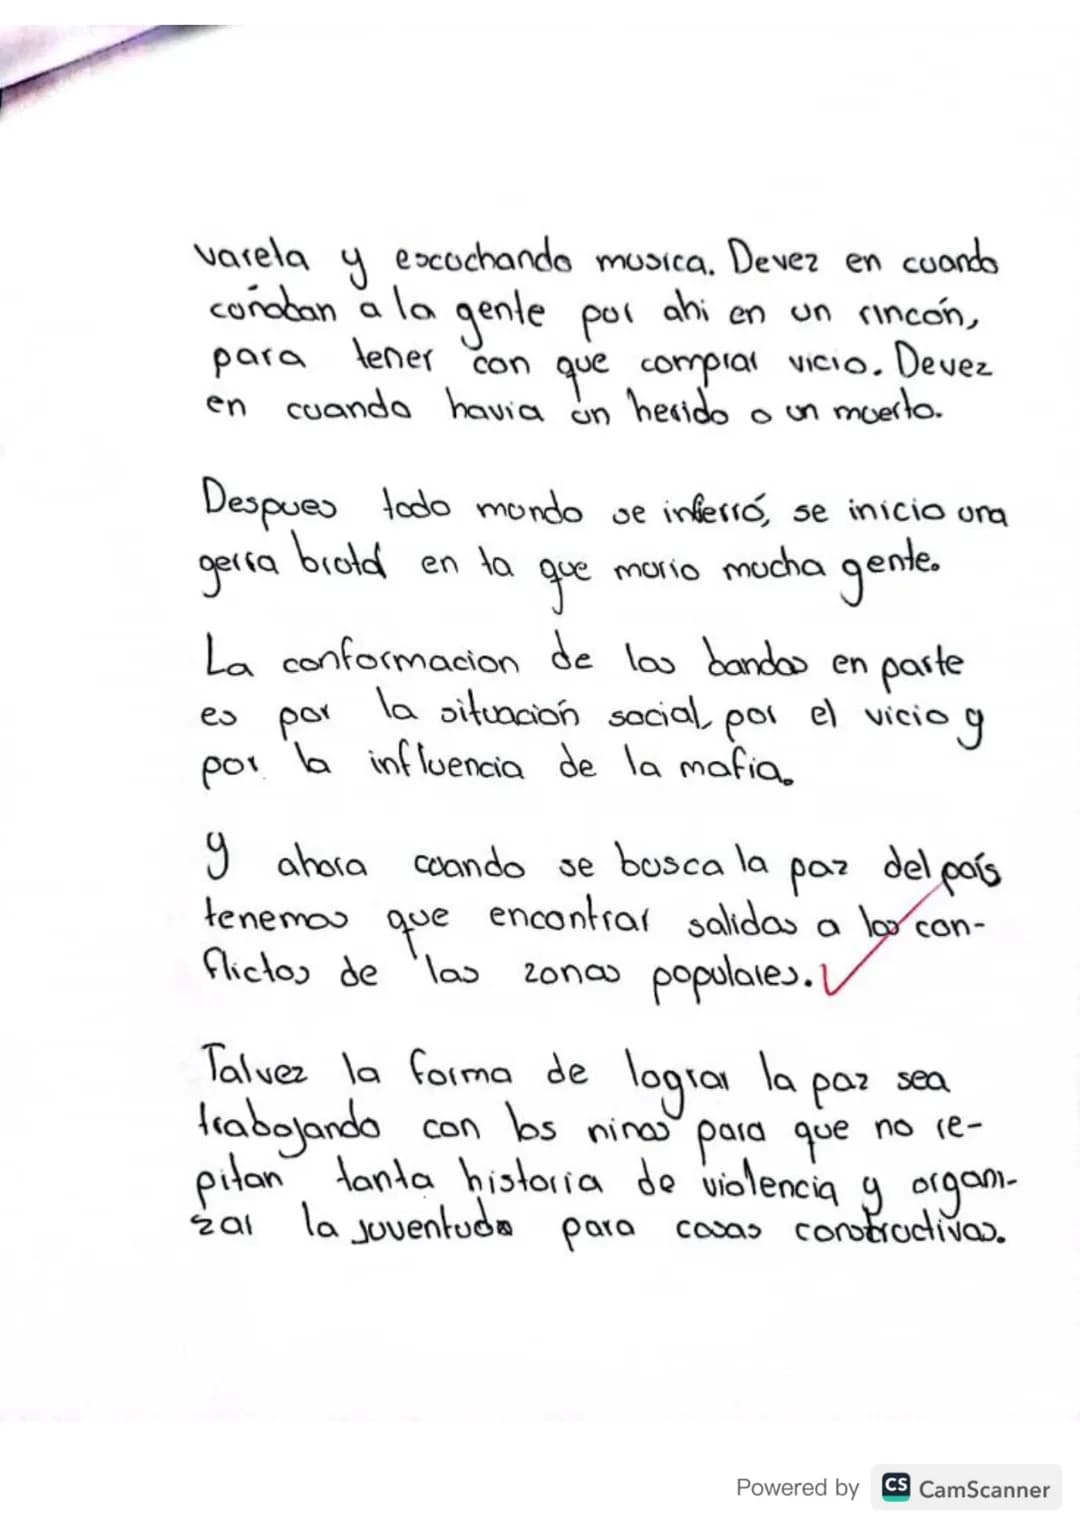 varela y escuchando musica. Devez en cuando
coñoban a la gente por ahi en un rincón,
para tener con que comprar vicio. Devez
en cuando havia un herido o un muerto.
Despues todo mundo se inferró, se inicio una
gerra brotd en la que murio mucha gente.
La conformacion de las bandas en parte
es por la situación social, por el vicio y
por la influencia de la mafia.
y ahora cuando se busca la paz del país
tenemos que encontrar salidas a los con-
flictos de las zonas populares.
Talvez la forma de lograr la paz sea
trabajando con los ninos para que no re-
pitan tanta historia de violencia y organi-
zar la juventud para cosas constructivas.
Powered by CS CamScanner